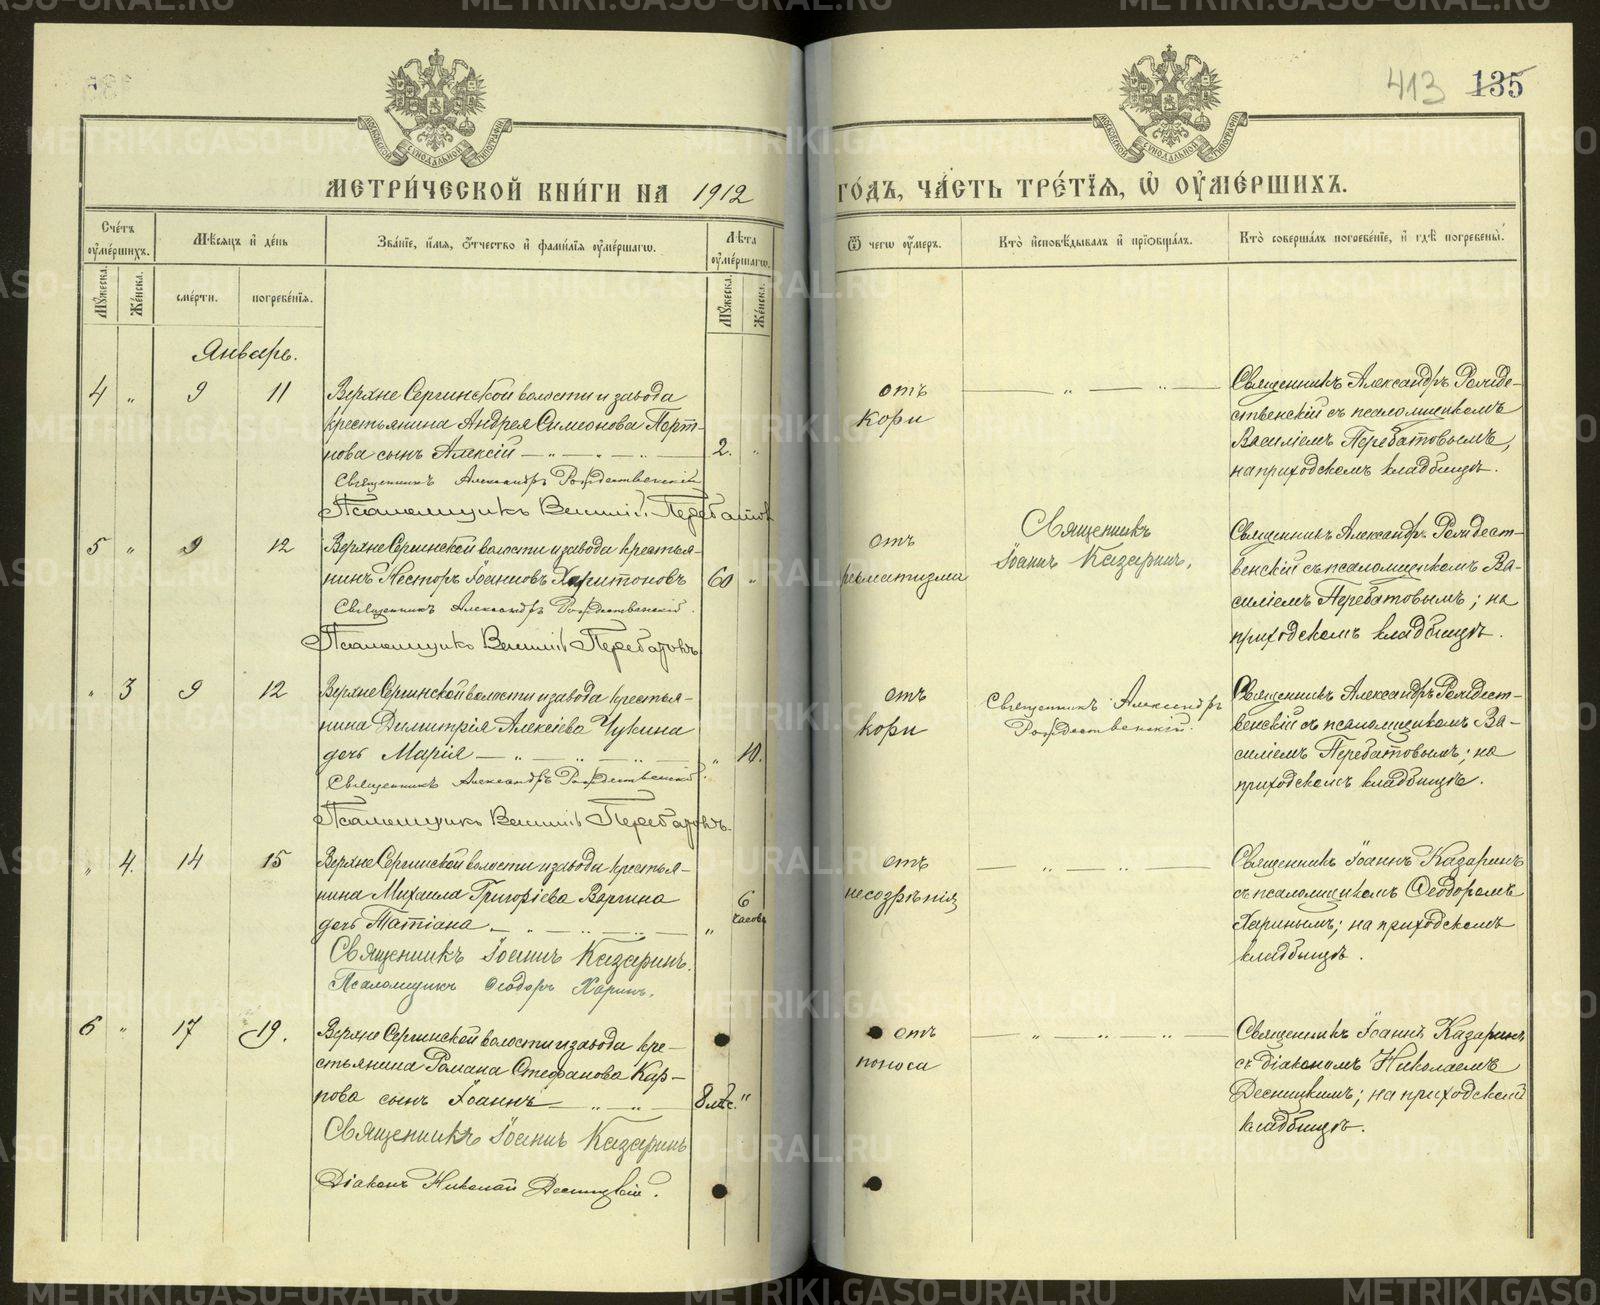 413 135
МОСКОВСКОЙ СѴНОДАЛЬНОЙ ТИПОГРАФІИ
МОСКОВСКОЙ СѴНОДАЛЬНОЙ ТИПОГРАФІИ
МЕТРИ́ЧЕСКОЙ КНИ́ГИ НА 1912 ГО́ДЪ, ЧА́СТЬ ТРЕ́ТІѦ, Ѡ ОУ҆МЕ́РШИХЪ.
Сче́тъ оу҆ме́ршихъ.
Мѣ́сяцъ и҆ де́нь
Зва́нїе, и҆́мя, ѻ҆́тчество и҆ фами́лїя оу҆ме́ршагѡ.
Лѣ́та оу҆ме́ршагѡ.
Ѿ чегѡ̀ оу҆́меръ.
Кто̀ и҆сповѣ́дывалъ и҆ прїѡбща́лъ.
Кто̀ соверша́лъ погребе́нїе, и҆ гдѣ̀ погребены̀.
Му́жеска. Же́нска. сме́рти. погребе́нїя. Му́жеска. Же́нска.
Январь.
4 „ 9 11
Верхне Сергинской волости и завода
крестьянина Андрея Симеонова Порт-
нова сынъ Алексій — „ — „ — 2. „
Священникъ Александръ Рождественскій
Псаломщикъ Василій Перебатов
отъ
кори
— „ — „ —
Священникъ Александръ Рожде-
ственскій съ псаломщикомъ
Василіемъ Перебатовымъ,
на приходскомъ кладбищѣ.
5 „ 9 12
Верхне Сергинской волости и завода крестья-
нинъ Несторъ Іоанновъ Харитоновъ 60 „
Священникъ Александръ Рождественскій.
Псаломщикъ Василій Перебатовъ.
отъ
ревматизма
Священникъ
Іоаннъ Казаринъ.
Священникъ Александръ Рождест-
венскій съ псаломщикомъ Ва-
силіемъ Перебатовымъ; на
приходскомъ кладбищѣ.
„ 3 9 12
Верхне Сергинской волости и завода крестья-
нина Димитрія Алексѣева Чукина
дочь Марія — „ — „ — „ 10.
Священникъ Александръ Рождественскій.
Псаломщикъ Василій Перебатовъ.
отъ
кори
Священникъ Александръ
Рождественскій.
Священникъ Александръ Рождест-
венскій съ псаломщикомъ Ва-
силіемъ Перебатовымъ; на
приходскомъ кладбищѣ.
„ 4. 14 15
Верхне Сергинской волости и завода крестья-
нина Михаила Григоріева Варгина
дочь Татіана — „ — „ — „ 6 часовъ
Священникъ Іоаннъ Казаринъ.
Псаломщикъ Ѳеодоръ Харинъ.
отъ
несозрѣнія
— „ — „ —
Священникъ Іоаннъ Казаринъ
съ псаломщикомъ Ѳеодоромъ
Харинымъ; на приходскомъ
кладбищѣ.
6 „ 17 19.
Верхне Сергинской волости и завода кре-
стьянина Романа Стефанова Кар-
пова сынъ Іоаннъ — „ — „ — 8 мѣс. „
Священникъ Іоаннъ Казаринъ
Діаконъ Николай Десницкій.
отъ
поноса
— „ — „ —
Священникъ Іоаннъ Казаринъ
съ діакономъ Николаемъ
Десницкимъ; на приходской
кладбищѣ.
METRIKI.GASO-URAL.RU